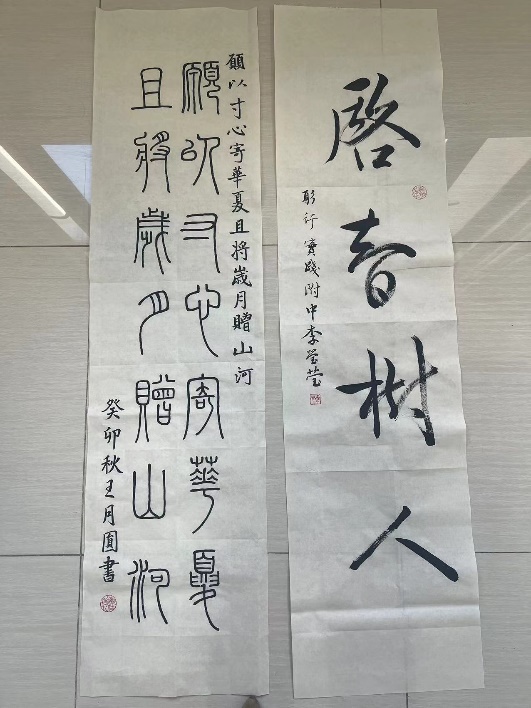 啓树人
行實踐附中李莹莹
願以寸心寄華夏且将歲月贈山河
願以寸心寄華夏
且將歲月贈山河
癸卯秋王月圓書